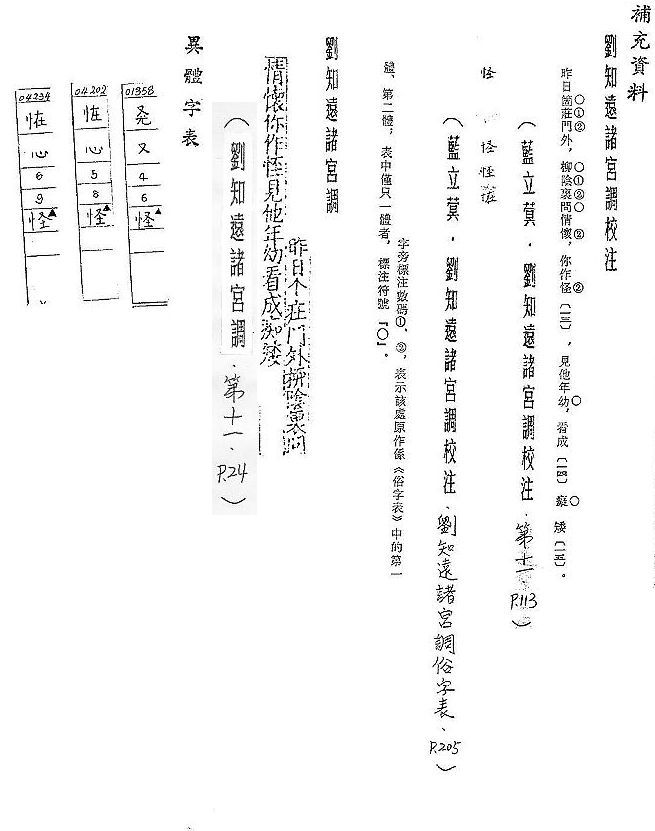 補充資料
劉知遠諸宮調校注
昨日箇莊門外，柳陰裏問情懷，你作怪〔一三〕，見他年幼，看成〔一四〕癡矮〔一五〕。
○①② ○①②○ ② ② ○ ○
（藍立蓂．劉知遠諸宮調校注．第十一．P.113）
怪 怪怪
（藍立蓂．劉知遠諸宮調校注．劉知遠諸宮調俗字表．P.205）
字旁標注數碼①、②，表示該處原作係《俗字表》中的第一
體、第二體，表中僅只一體者，標注符號『○』。
劉知遠諸宮調
昨日个庄門外栁陰裏问
情懷你作怪見他年幼看成痴矮
（劉知遠諸宮調．第十一．P.24）
異體字表
01358
又
4
6
怪▲
04202
恠
心
5
8
怪▲
04234
心
6
9
怪▲